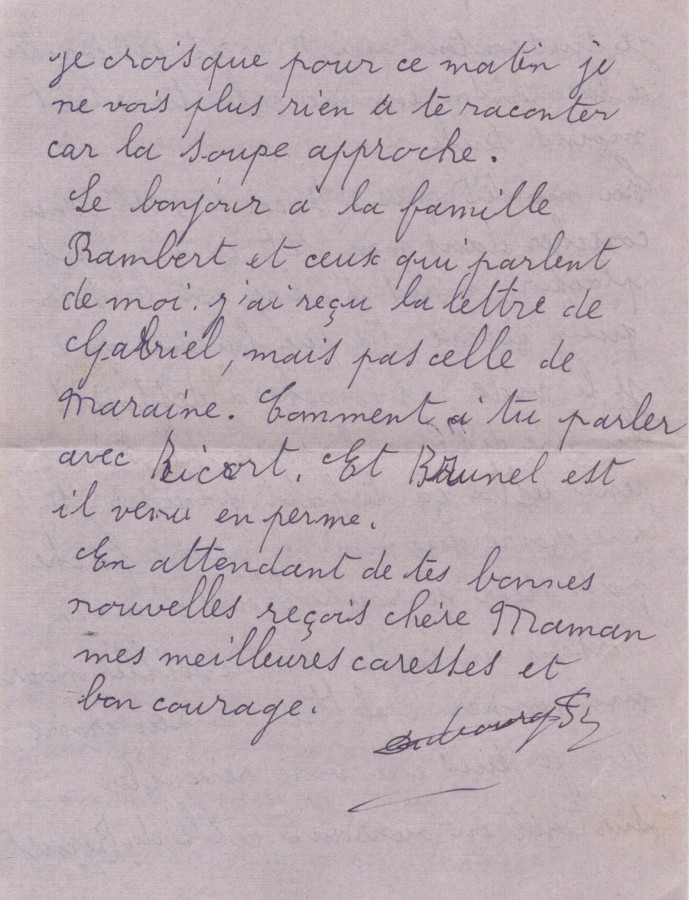 je crois que pour ce matin je
ne vois plus rien a te raconter
car la soupe approche.
Le bonjour a la famille
Rambert et ceux qui parlent
de moi. j'ai reçu la lettre de
Gabriel, mais pas celle de
Maraine. Comment a tu parler
avec Ricort. Et Brunel est
il venu en perme.
En attendant de tes bonnes
nouvelles reçois chère Maman
mes meilleures caresses et
bon courage.